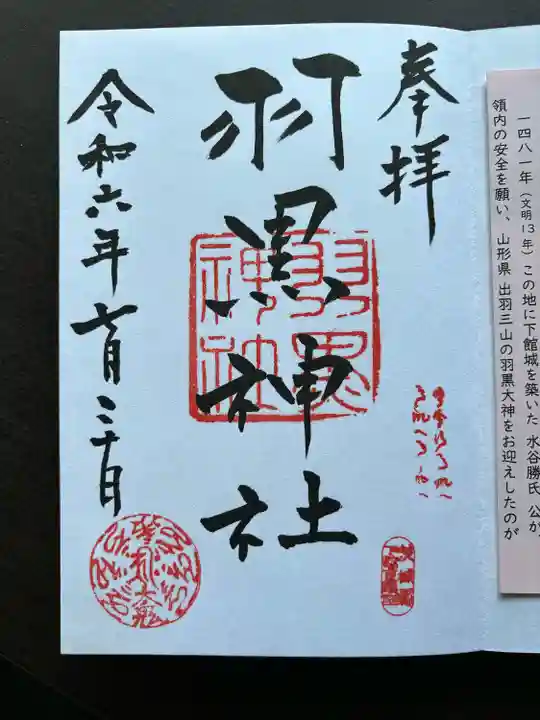 一四八一年（文明13年）この地に下館城を築いた 水谷勝氏 公が、
領内の安全を願い、山形県 出羽三山の羽黒大神をお迎えしたのが
奉拝
羽黒神社
羽黒
神社
令和六年七月二十日